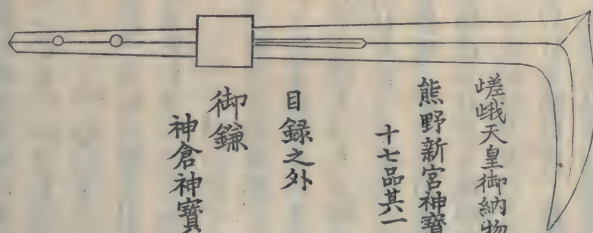 嵯峨天皇御納物
熊野新宮神寳
十七品其一
目録之外
御鎌
神倉神寳